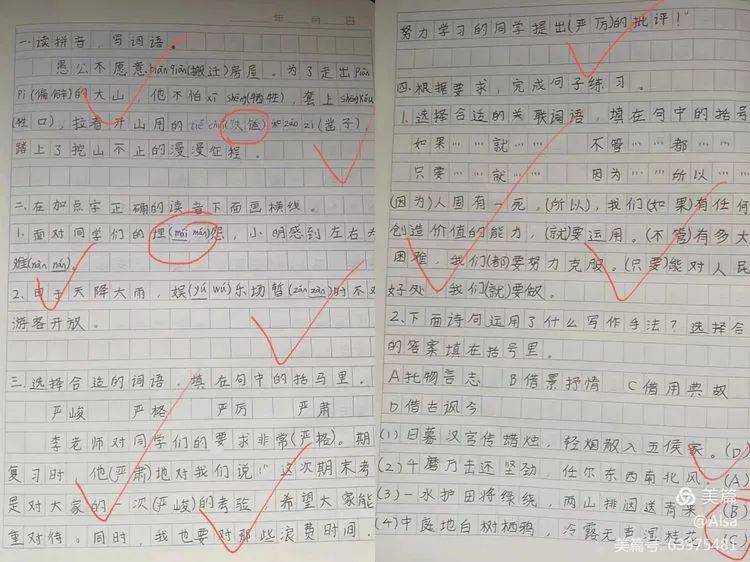 年 月 日
一.读拼音,写词语。
愚公不愿意 bān qiān(搬迁)房屋。为了走出 piān
pì(偏僻)的大山,他不怕 xī shēng(牺牲),套上 shēng kǒu
(牲口),拉着开山用的 tiě chuí( )和 záo zi(凿子),
踏上了挖山不止的漫漫征程。
二.在加点字正确的读音下面画横线。
1.面对同学们的埋(mái mán)怨,小明感到左右
难(nán nàn)。
2.由于天降大雨,娱(yú wú)乐场暂(zàn zhàn)时不对
游客开放。
三.选择合适的词语,填在句中的括号里。
严峻 严格 严厉 严肃
李老师对同学们的要求非常(严格)。期
复习时,他(严肃)地对我们说:“这次期末考
是对大家的一次(严峻)的考验,希望大家能
重对待。同时,我也要对那些浪费时间、
努力学习的同学提出(严厉)的批评!”
四.根据要求,完成句子练习。
1.选择合适的关联词语,填在句中的括号
如果……就…… 不管……都……
只要……就…… 因为……所以……
(因为)人固有一死,(所以),我们(如果)有任何
创造价值的能力,(就)要运用。(不管)有多大
困难,我们(都)要努力克服。(只要)能对人民
好处,我们(就)要做。
2.下面诗句运用了什么写作手法?选择合
的答案填在括号里。
A托物言志 B借景抒情 C借用典故
D借古讽今
(1)日暮汉宫传蜡烛,轻烟散入五侯家。(D)
(2)千磨万击还坚劲,任尔东西南北风。(A)
(3)一水护田将绿绕,两山排闼送青来。(B)
(4)中庭地白树栖鸦,冷露无声湿桂花。(C)
美篇
@Alsa
美篇号:63375481